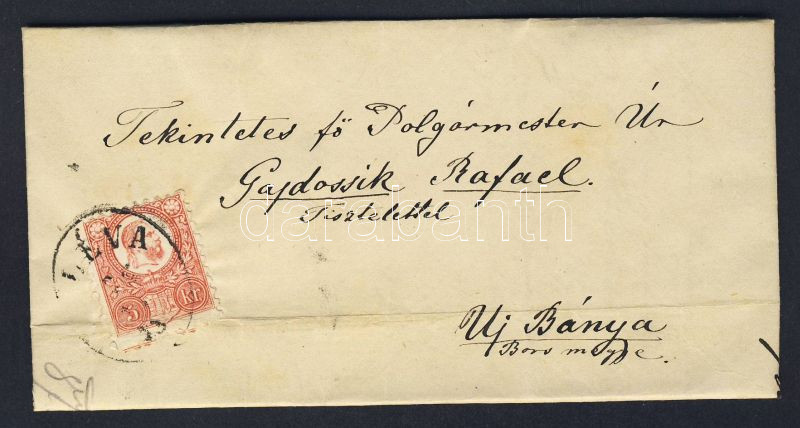 Tekintetes fő Polgármester Úr
Gajdossik Rafael.
Tisztelettel
darabanth
LÉVA
5 Kr
Uj Bánya
Bars megye.